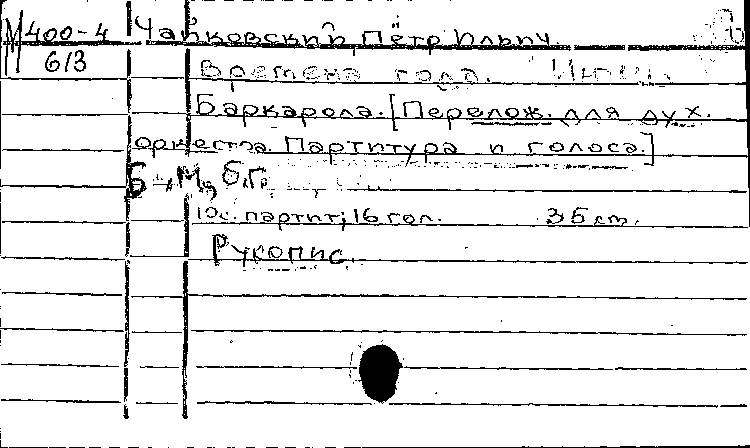 М400-4 Чайковский, Пётр Ильич
613 Времена года. Июнь.
Баркарола. [Перелож. для дух.
оркестра. Партитура и голоса.]
Б.м., б.г.
10с. партит; 16 гол. 35 см.
Рукопис.